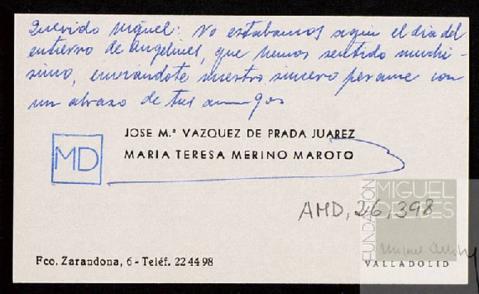 Querido Miguel: No estabamos aqui el dia del
entierro de Angelines, que hemos sentido muchi-
simo, enviandote nuestro sincero pesame con
un abrazo de tus amigos
JOSE M.ª VAZQUEZ DE PRADA JUAREZ
MD
MARIA TERESA MERINO MAROTO
AMD, 26, 398
FUNDACIÓN
MIGUEL
DELIBES
Fco. Zarandona, 6 - Teléf. 22 44 98
VALLADOLID